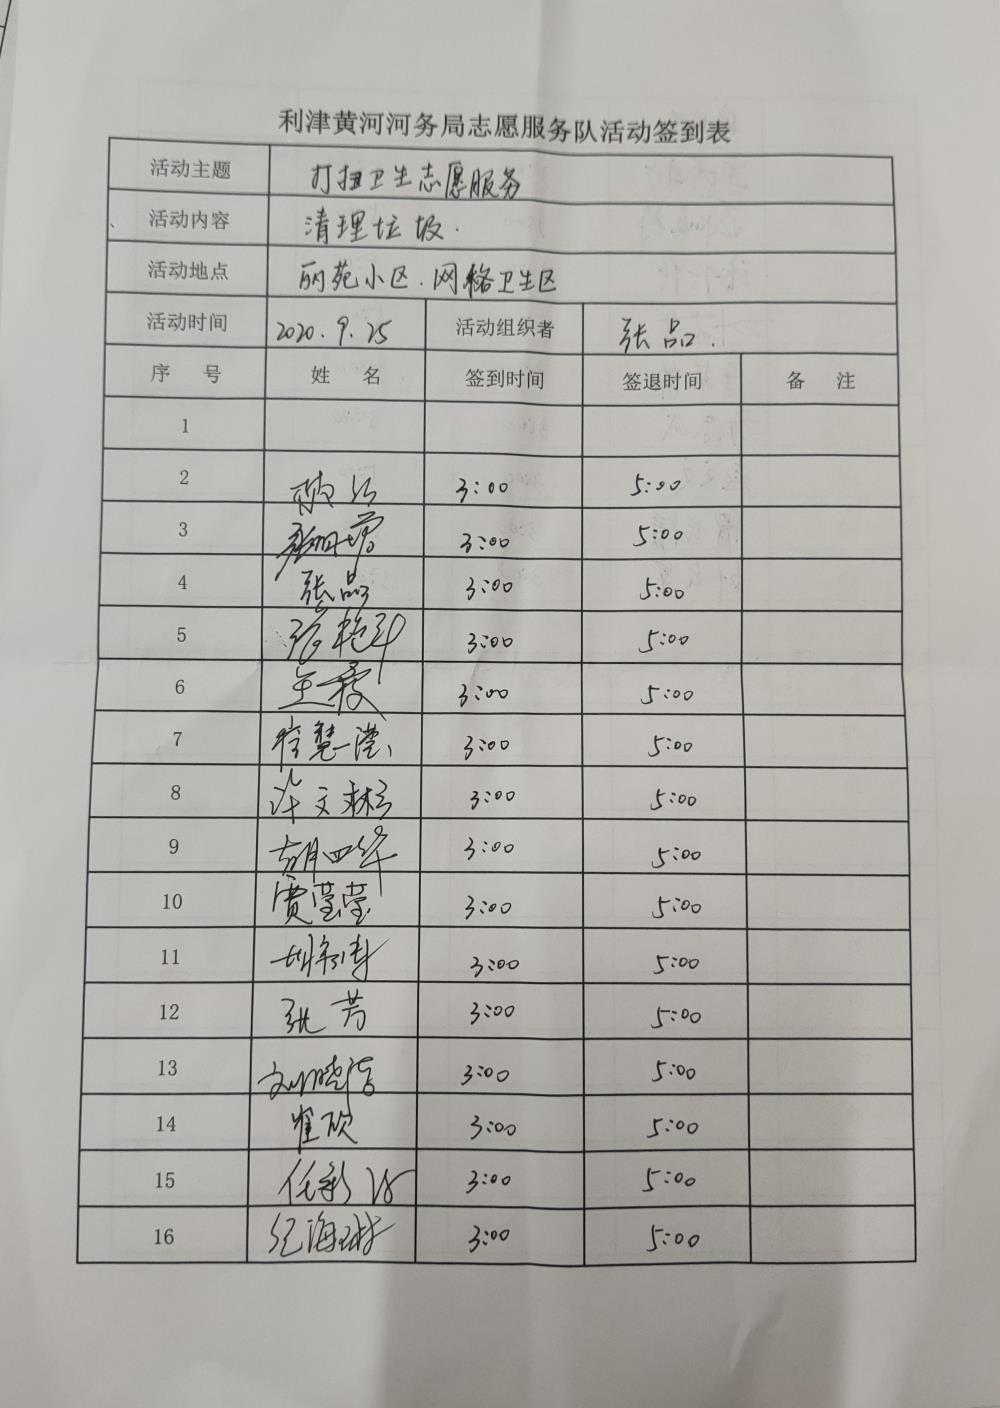 利津黄河河务局志愿服务队活动签到表
活动主题 打扫卫生志愿服务
活动内容 清理垃圾.
活动地点 丽苑小区.网格卫生区
活动时间 2020.9.25 活动组织者 张品.
序 号 姓 名 签到时间 签退时间 备 注
1
2 3:00 5:00
3 3:00 5:00
4 张品 3:00 5:00
5 3:00 5:00
6 3:00 5:00
7 3:00 5:00
8 许文彬 3:00 5:00
9 胡四华 3:00 5:00
10 贾莹莹 3:00 5:00
11 3:00 5:00
12 张芳 3:00 5:00
13 刘晓洁 3:00 5:00
14 崔欣 3:00 5:00
15 3:00 5:00
16 纪海琳 3:00 5:00